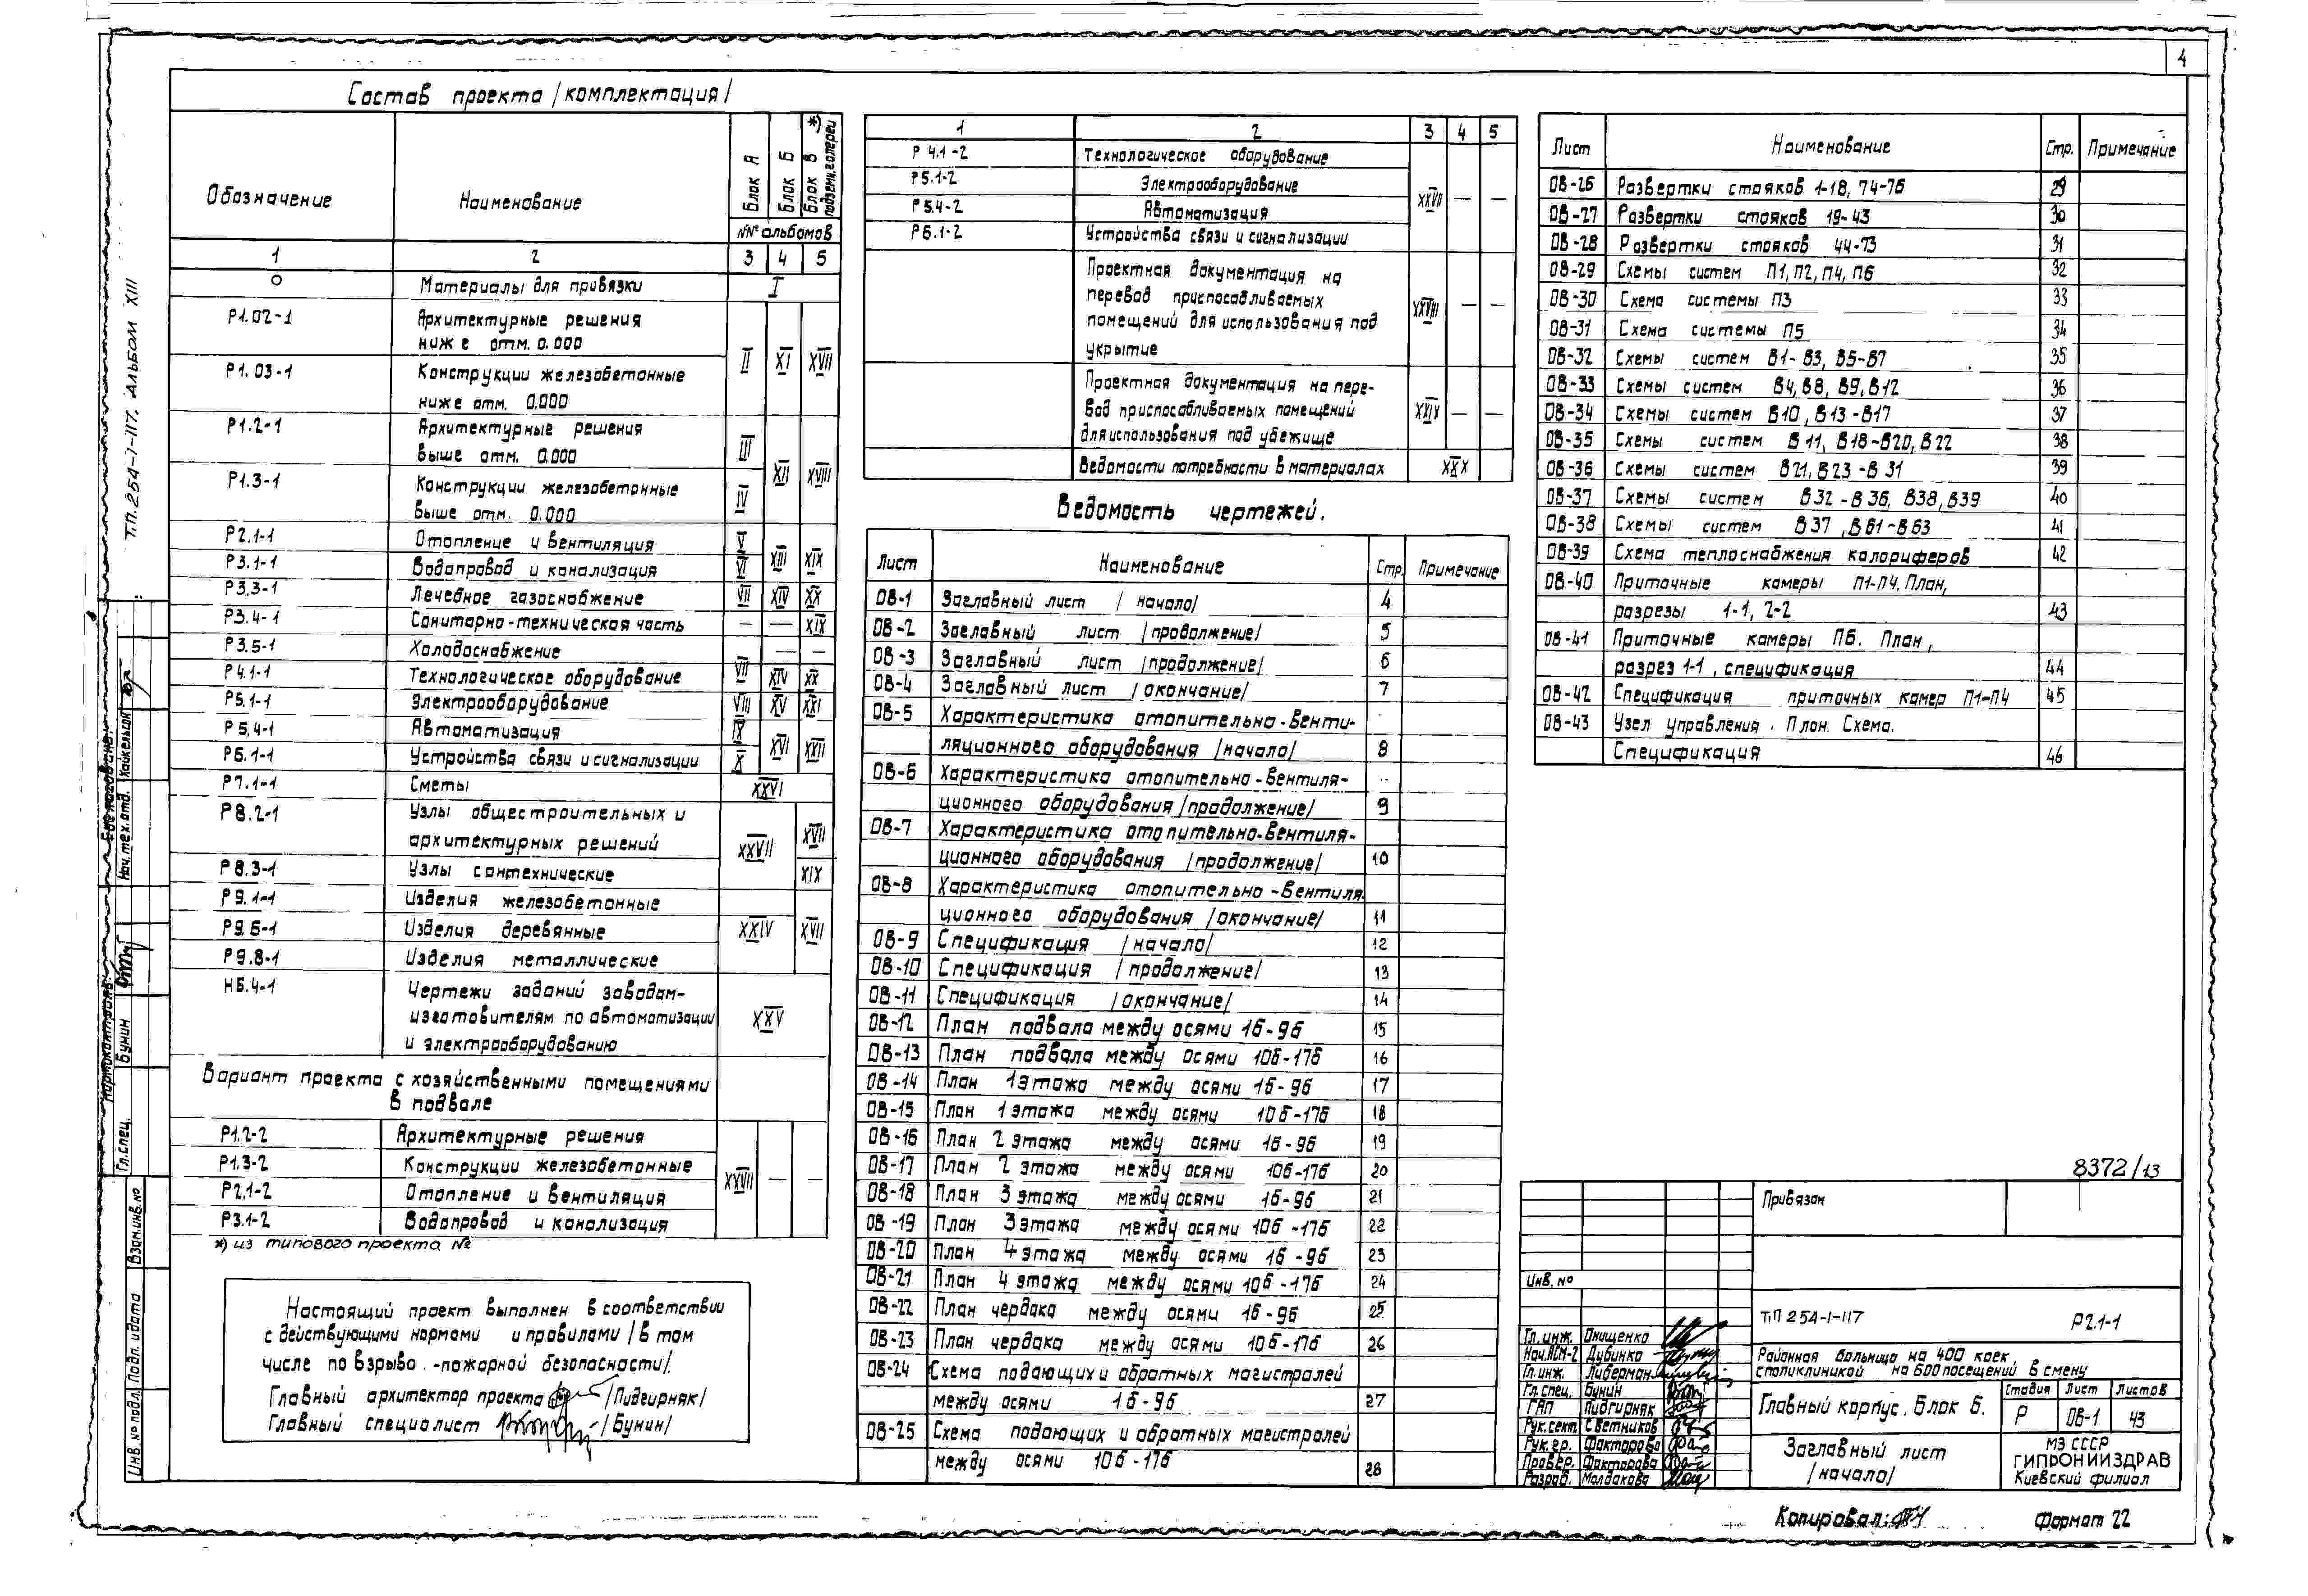 4
Состав проекта /комплектация/
Обозначение
Наименование
Блок А
Блок Б
Блок В *)
подземн. галереи
№№ альбомов
1 2 3 4 5
0 Материалы для привязки I
Р1.02-1 Архитектурные решения
ниже отм. 0.000
II XI XVII
Р1.03-1 Конструкции железобетонные
ниже отм. 0.000
Р1.2-1 Архитектурные решения
выше отм. 0.000
III XII XVIII
Р1.3-1 Конструкции железобетонные
выше отм. 0.000
IV
Р2.1-1 Отопление и вентиляция V
XIII XIX
Р3.1-1 Водопровод и канализация VI
Р3.3-1 Лечебное газоснабжение VII XIV XX
Р3.4-1 Санитарно-техническая часть — — XIX
Р3.5-1 Холодоснабжение — —
Р4.1-1 Технологическое оборудование VII XIV XX
Р5.1-1 Электрооборудование VIII XV XXI
Р5.4-1 Автоматизация IX
XVI XXII
Р6.1-1 Устройства связи и сигнализации X
Р7.1-1 Сметы XXVI
Р8.2-1 Узлы общестроительных и
архитектурных решений
XXVII XVII
Р8.3-1 Узлы сантехнические XIX
Р9.1-1 Изделия железобетонные
Р9.6-1 Изделия деревянные XXIV XVII
Р9.8-1 Изделия металлические
Н6.4-1 Чертежи заданий заводам-
изготовителям по автоматизации
и электрооборудованию
XXV
Вариант проекта с хозяйственными помещениями
в подвале
Р1.2-2 Архитектурные решения
Р1.3-2 Конструкции железобетонные
XXVII — —
Р2.1-2 Отопление и вентиляция
Р3.1-2 Водопровод и канализация
*) из типового проекта №
Настоящий проект выполнен в соответствии
с действующими нормами и правилами /в том
числе по взрыво.-пожарной безопасности/.
Главный архитектор проекта /Пидгирняк/
Главный специалист /Бунин/
1 2 3 4 5
Р4.1-2 Технологическое оборудование
Р5.1-2 Электрооборудование
XXVII — —
Р5.4-2 Автоматизация
Р6.1-2 Устройства связи и сигнализации
Проектная документация на
перевод приспосабливаемых
помещений для использования под
укрытие
XXVIII — —
Проектная документация на пере-
вод приспосабливаемых помещений
для использования под убежище
XXIX — —
Ведомости потребности в материалах XXX
Ведомость чертежей.
Лист Наименование Стр. Примечание
ОВ-1 Заглавный лист /начало/ 4
ОВ-2 Заглавный лист /продолжение/ 5
ОВ-3 Заглавный лист /продолжение/ 6
ОВ-4 Заглавный лист /окончание/ 7
ОВ-5 Характеристика отопительно-венти-
ляционного оборудования /начало/ 8
ОВ-6 Характеристика отопительно-вентиля-
ционного оборудования /продолжение/ 9
ОВ-7 Характеристика отопительно-вентиля-
ционного оборудования /продолжение/ 10
ОВ-8 Характеристика отопительно-вентиля
ционного оборудования /окончание/ 11
ОВ-9 Спецификация /начало/ 12
ОВ-10 Спецификация /продолжение/ 13
ОВ-11 Спецификация /окончание/ 14
ОВ-12 План подвала между осями 1б-9б 15
ОВ-13 План подвала между осями 10б-17б 16
ОВ-14 План 1 этажа между осями 1б-9б 17
ОВ-15 План 1 этажа между осями 10б-17б 18
ОВ-16 План 2 этажа между осями 1б-9б 19
ОВ-17 План 2 этажа между осями 10б-17б 20
ОВ-18 План 3 этажа между осями 1б-9б 21
ОВ-19 План 3 этажа между осями 10б-17б 22
ОВ-20 План 4 этажа между осями 1б-9б 23
ОВ-21 План 4 этажа между осями 10б-17б 24
ОВ-22 План чердака между осями 1б-9б 25
ОВ-23 План чердака между осями 10б-17б 26
ОВ-24 Схема подающих и обратных магистралей
между осями 1б-9б 27
ОВ-25 Схема подающих и обратных магистралей
между осями 10б-17б 28
Лист Наименование Стр. Примечание
ОВ-26 Развертки стояков 1-18, 74-76 29
ОВ-27 Развертки стояков 19-43 30
ОВ-28 Развертки стояков 44-73 31
ОВ-29 Схемы систем П1, П2, П4, П6 32
ОВ-30 Схема системы П3 33
ОВ-31 Схема системы П5 34
ОВ-32 Схемы систем В1-В3, В5-В7 35
ОВ-33 Схемы систем В4, В8, В9, В12 36
ОВ-34 Схемы систем В10, В13-В17 37
ОВ-35 Схемы систем В11, В18-В20, В22 38
ОВ-36 Схемы систем В21, В23-В31 39
ОВ-37 Схемы систем В32-В36, В38, В39 40
ОВ-38 Схемы систем В37, В61-В63 41
ОВ-39 Схема теплоснабжения калориферов 42
ОВ-40 Приточные камеры П1-П4. План,
разрезы 1-1, 2-2 43
ОВ-41 Приточные камеры П6. План,
разрез 1-1, спецификация 44
ОВ-42 Спецификация приточных камер П1-П4 45
ОВ-43 Узел управления. План. Схема.
Спецификация 46
8372/13
Привязан
Инв. №
Т.П 254-1-117 Р2.1-1
Районная больница на 400 коек,
с поликлиникой на 600 посещений в смену
Главный корпус. Блок Б.
Стадия Лист Листов
Р ОВ-1 43
Заглавный лист
/начало/
МЗ СССР
ГИПРОНИИЗДРАВ
Киевский филиал
Гл. инж. Онищенко
Нач. АСМ-2 Дубинко
Гл. инж. Либерман
Гл. спец. Бунин
ГАП Пидгирняк
Рук. сект. Светников
Рук. гр. Факторова
Провер. Факторова
Разраб. Молдакова
Копировал:
Формат 22
Т.П. 254-1-117. Альбом XIII
Согласовано:
Нач. тех. отд. Хайкельсон
Нормоконтроль:
Гл. спец. Бунин
Взам. инв. №
Подп. и дата
Инв. № подл.